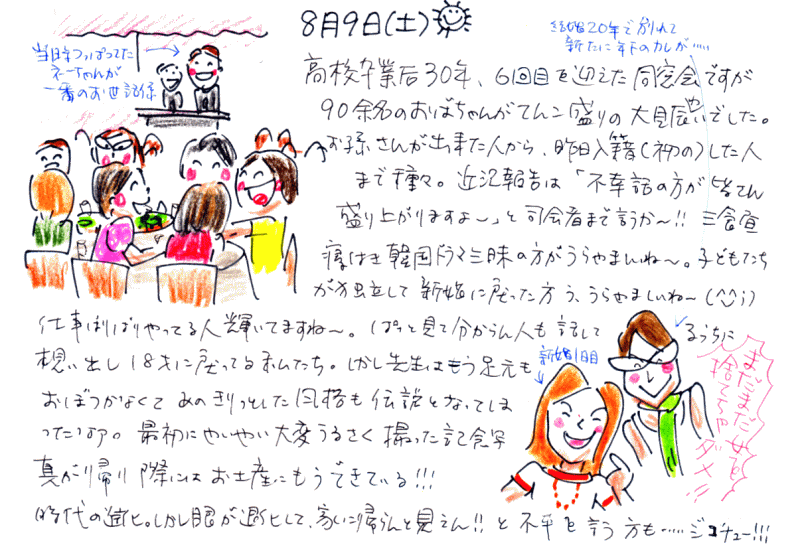 8月9日(土)
結婚20年で別れて
新たに年下のカレが‥‥
当時つっぱってた
ネーちゃんが
一番のお世話係
高校卒業后30年、6回目を迎えた同窓会ですが
90余名のおばちゃんがてんこ盛りの大賑いでした。
お孫さんが出来た人から、昨日入籍(初の)した人
まで種々。近況報告は「不幸話の方が皆さん
盛り上がりますよ〜」と司会者まで言うか〜!! 三食昼
寝付き韓国ドラマ三昧の方がうらやましいね〜。子どもたち
が独立して新婚に戻った方う、うらやましいね〜(^^;)
仕事ばりばりやってる人輝いてますね〜。ぱっと見て分からん人も話して
想い出し18才に戻ってる私たち。しかし先生はもう足元も
おぼつかなくて あのきりっとした風格も伝説となってしま
ったなァ。最初にやいやい大変うるさく撮った記念写
真が帰り際にはお土産にもうできている!!!
時代の進化。しかし眼が退化して、家に帰らんと見えん!!と不平を言う方も‥‥‥ジコチュー!!!
新婚1日目
るっちに
まだまだ女を
捨てちゃダメ!!